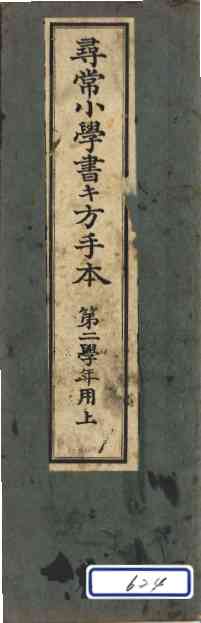 尋常小學書キ方手本 第二學年用上
624